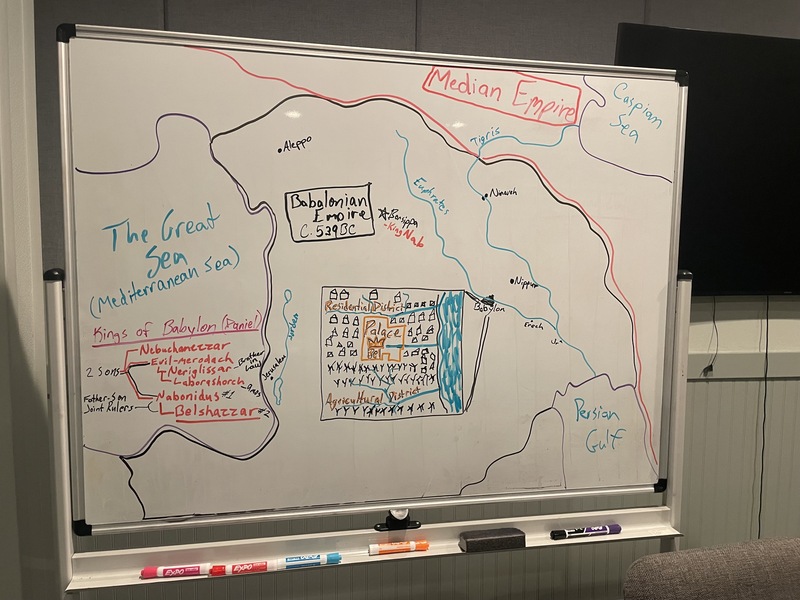 Median Empire
Caspian
Sea
Tigris
Aleppo
Euphrates
Ninevah
Babalonian
Empire
C. 539BC
Borsippa
-King Nab
The Great
Sea
(Mediterranean Sea)
Nippur
Babylon
Erech
Ur
Residential District
Palace
Bel
Agricultural District
Jorden
Jerusalem
Kings of Babylon (Daniel)
Nebuchanezzar
2 sons
Evil-merodach
Neriglissar
Brother
in
Law
Laboroshorch
Nabonidus #1
Father-Son
Joint Rulers
Belshazzar #2
Persian
Gulf
EXPO
EXPO